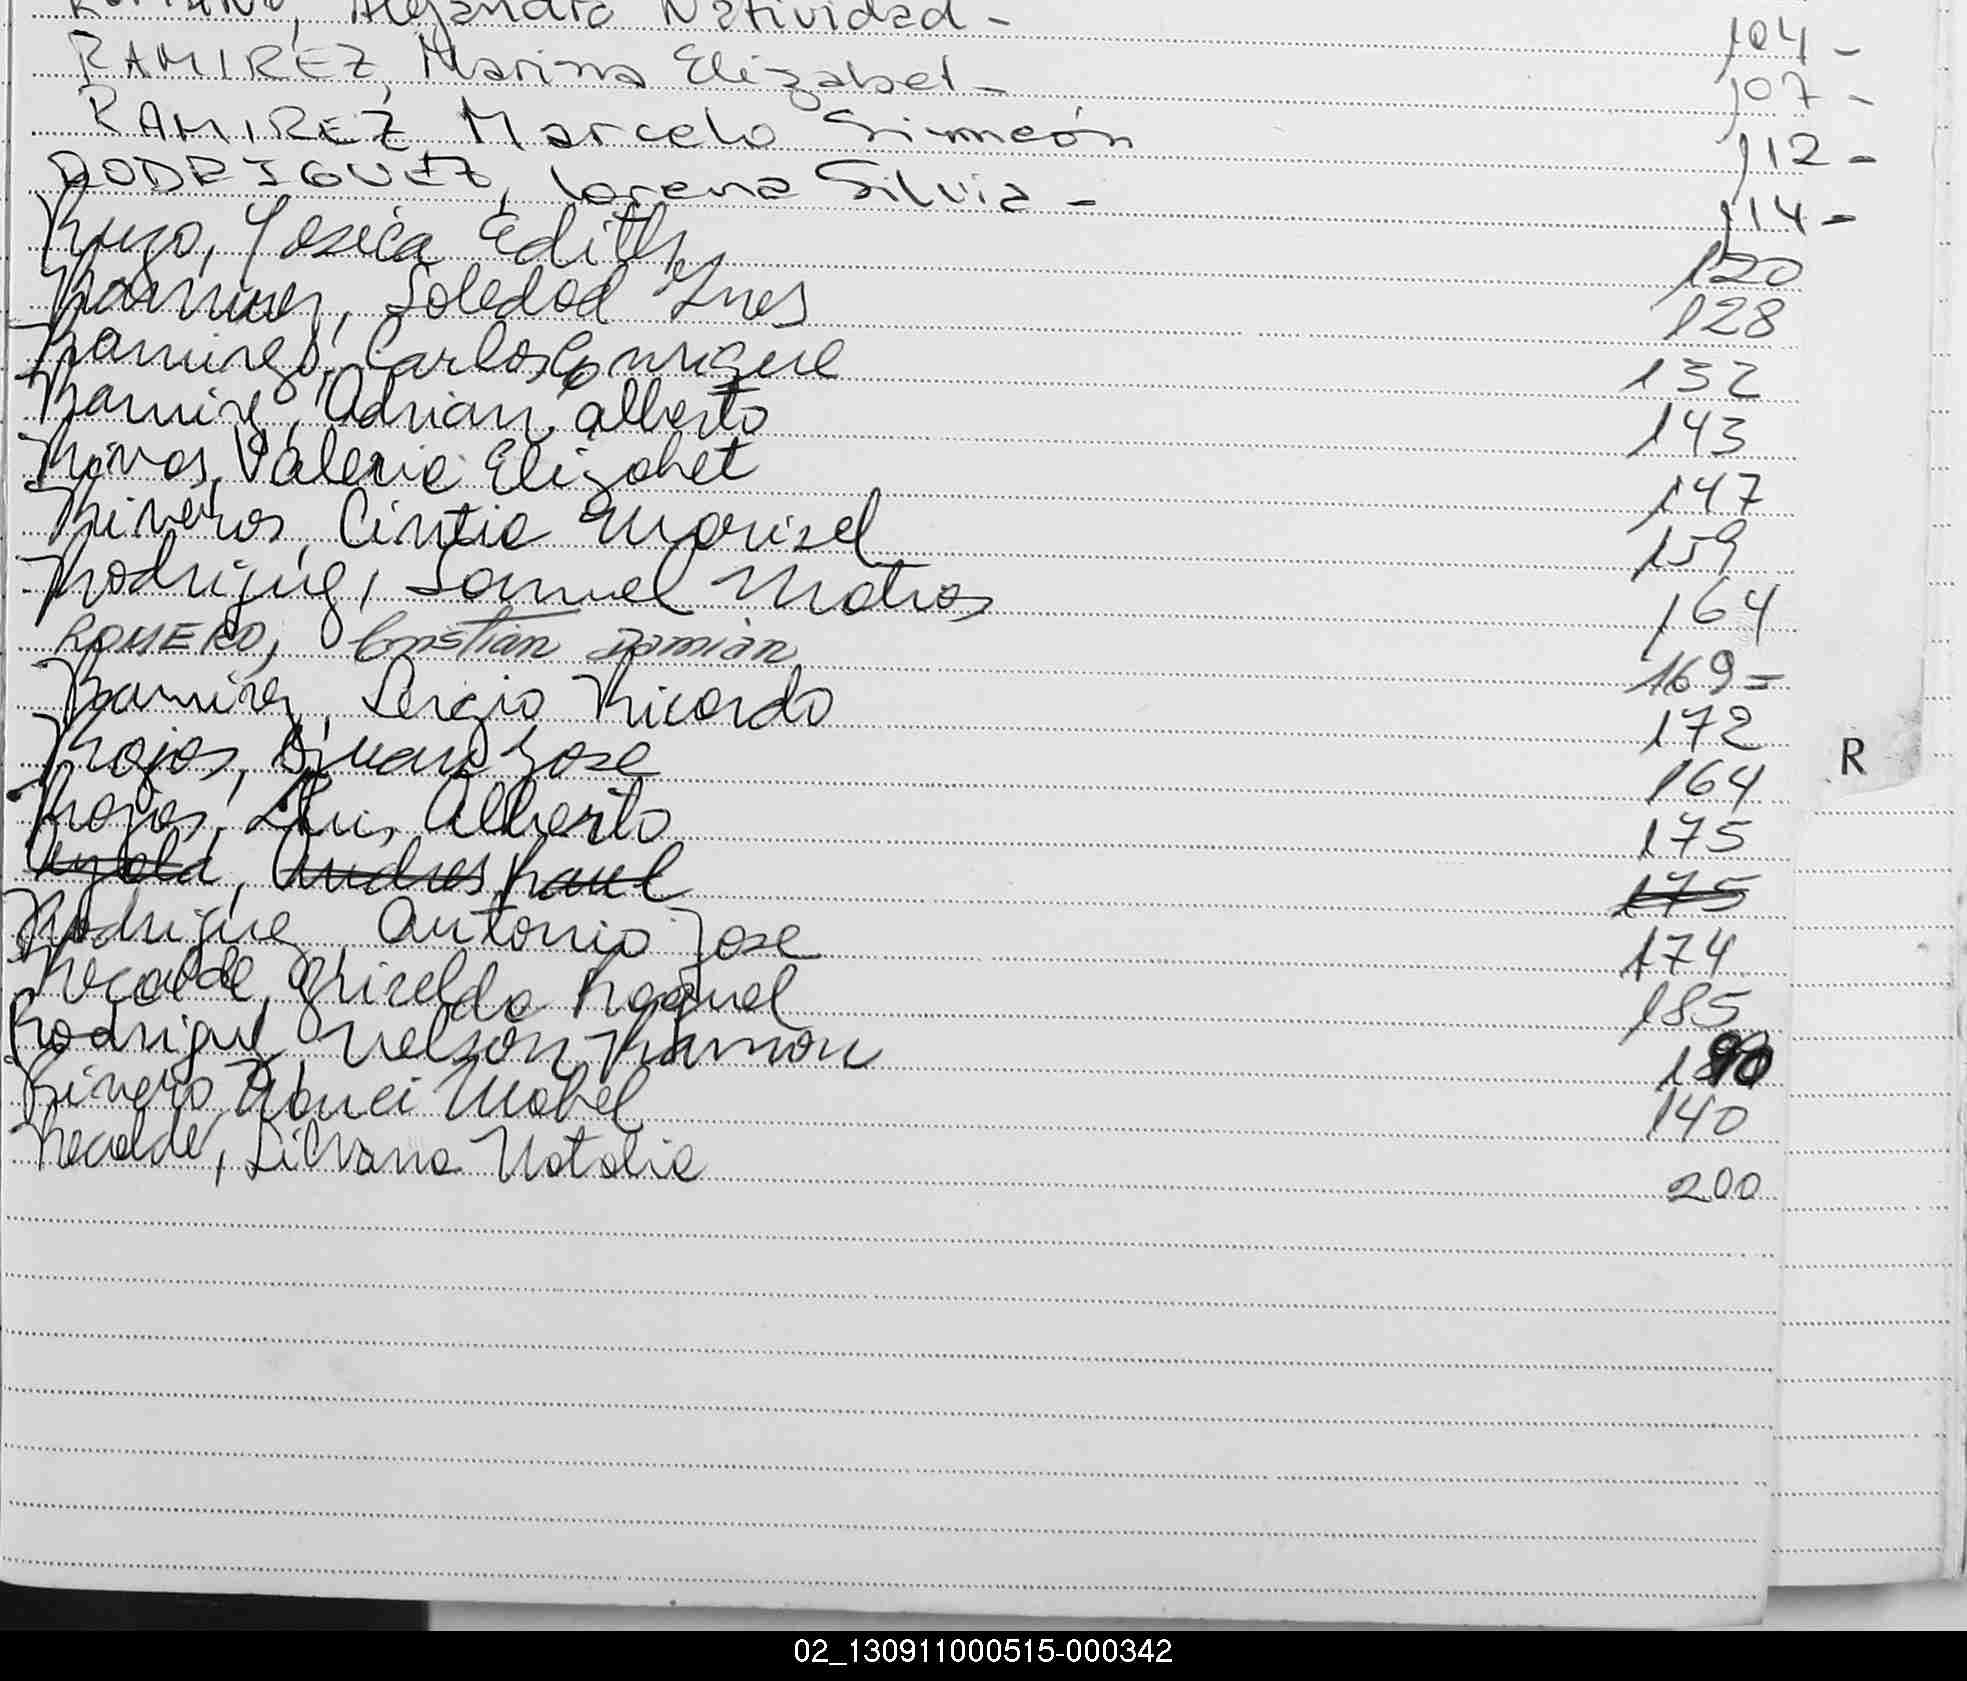 Alejandra Natividad - 104 -
RAMIREZ, Marina Elizabet - 107 -
RAMIREZ Marcelo Simeón 112 -
RODRIGUEZ, Lorena Silvia - 114 -
Yesica Edith 120
Ramirez, Soledad Ynes 128
Ramirez, Carlos Enrique 132
Ramirez, Adrian alberto 143
Rivas, Valeria Elizabet 147
Riveros, Cintia Marisel 159
Rodriguez, Samuel Matias 164
ROMERO, Cristian Damián 169 =
Ramirez, Sergio Ricardo 172
Rojas, Jose 164
Rojas, Luis Alberto 175
Ayala, Andres Raul 175
Rodriguez, Antonio Jose 174
Recalde, Griselda Raquel 185
Rodriguez Nelson Ramon 190
Rivero, Mabel 140
Recalde, Silvana Natalia 200
R
02_130911000515-000342